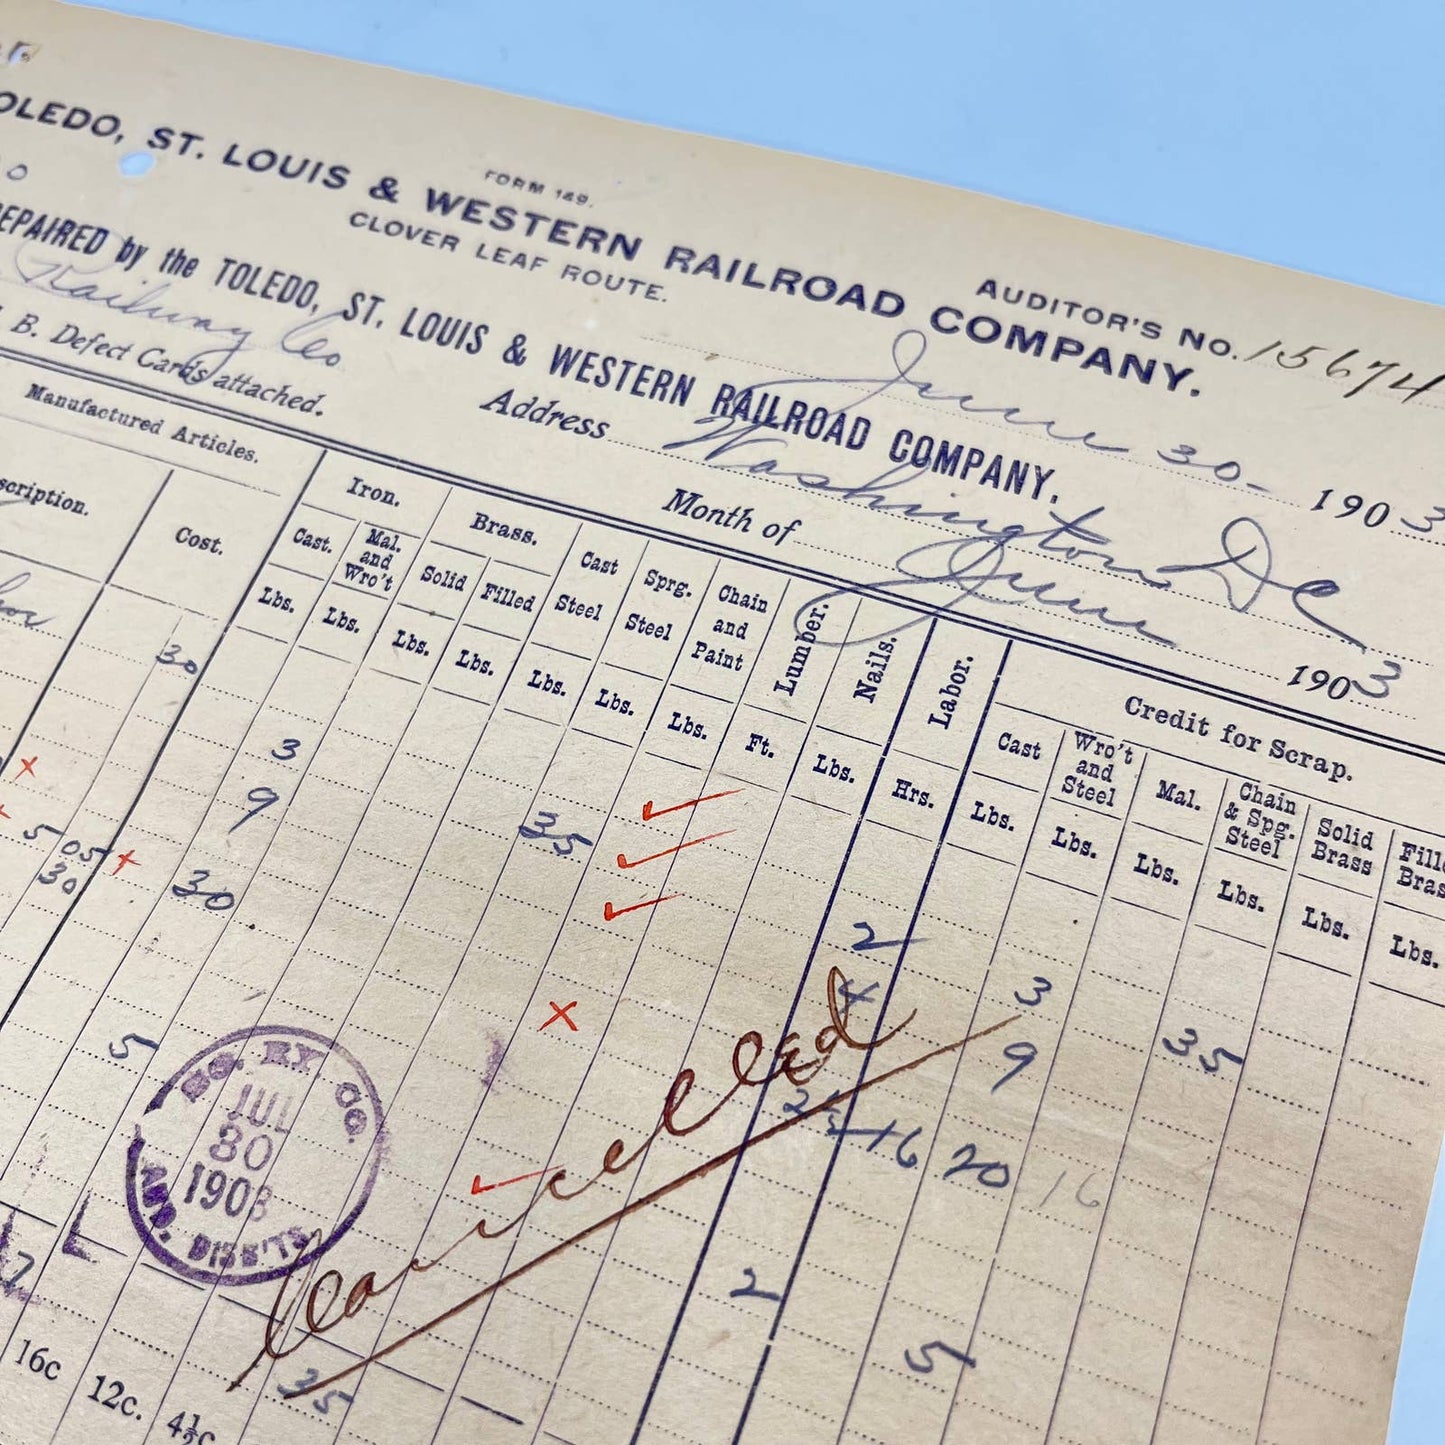 FORM 189.
TOLEDO, ST. LOUIS & WESTERN RAILROAD COMPANY.
CLOVER LEAF ROUTE.
AUDITOR'S NO. 15674
June 30- 1903
REPAIRED by the TOLEDO, ST. LOUIS & WESTERN RAILROAD COMPANY.
Railway Co Address Washington DC
B. Defect Cards attached. Month of June 1903
Manufactured Articles. Iron. Brass. Cast Steel Sprg. Steel Chain and Paint Lumber. Nails. Labor. Credit for Scrap.
Cost. Cast. Mal. and Wro't Solid Filled Cast Wro't and Steel Mal. Chain & Spg. Steel Solid Brass
Lbs. Lbs. Lbs. Lbs. Lbs. Lbs. Lbs. Ft. Lbs. Hrs. Lbs. Lbs. Lbs. Lbs. Lbs. Lbs.
30
3
9 35
5 05 30
30
2 3
4 9 35
5
16 20 16
2
5
Cancelled
SO. RY. CO.
JUL
30
1903
AUD. DISB'TS
35
16c 12c. 4½c